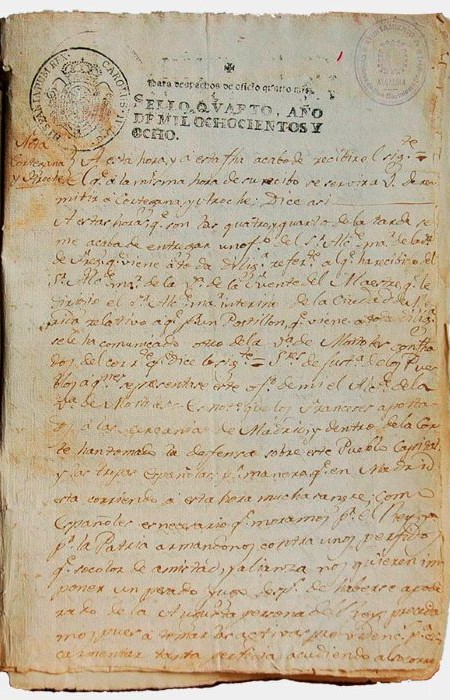 HISPANIARUM REX
CAROLUS IV D
Para despachos de oficio quatro mrs.
SELLO QVARTO, AÑO
DE MIL OCHOCIENTOS Y
OCHO.
Cortegana
y Aroche
A esta hora, y a esta fha acabo de recibir el sigte
q. a la misma hora de su recibo se servira V. de re
mitir a Cortegana y Aroche; Dice asi
A estas horas q. son las quatro y quarto de la tarde se
me acaba de entregar un ofo del Sr Alce mor de la
q. viene a refere a q. ha recibido del
Sr Alce mor de la Va de la Fuente del Maestre q. le
dirijio el Sr Alce mor interino de la Ciudad de Me
rida relativo a q. Portillon, q. viene
se le ha comunicado otro de la Va de Mostoles
dos del q. dice lo sigte = Sres de Justa de los Pue
blos a qnes se presentase este ofo de mi el Alce de la
Va de Mostoles: Es notorio q. los Franceses aposta
dos a las cercanias de Madrid y dentro de la Cor
te han tomado la defensa sobre este Pueblo Capital
y las tropas Españolas; pr manera q. en Madrid
esta corriendo a esta hora mucha sangre; como
Españoles es necesario q. muramos pr el Rey y
pr la Patria armandonos contra unos perfidos
q. so color de amistad y alianza nos quieren im
poner un pesado yugo desps de haberse apode
rado de la Augusta persona del Rey; proceda
mos pues a tomar las activas
carmentar tanta perfidia acudiendo al socorro